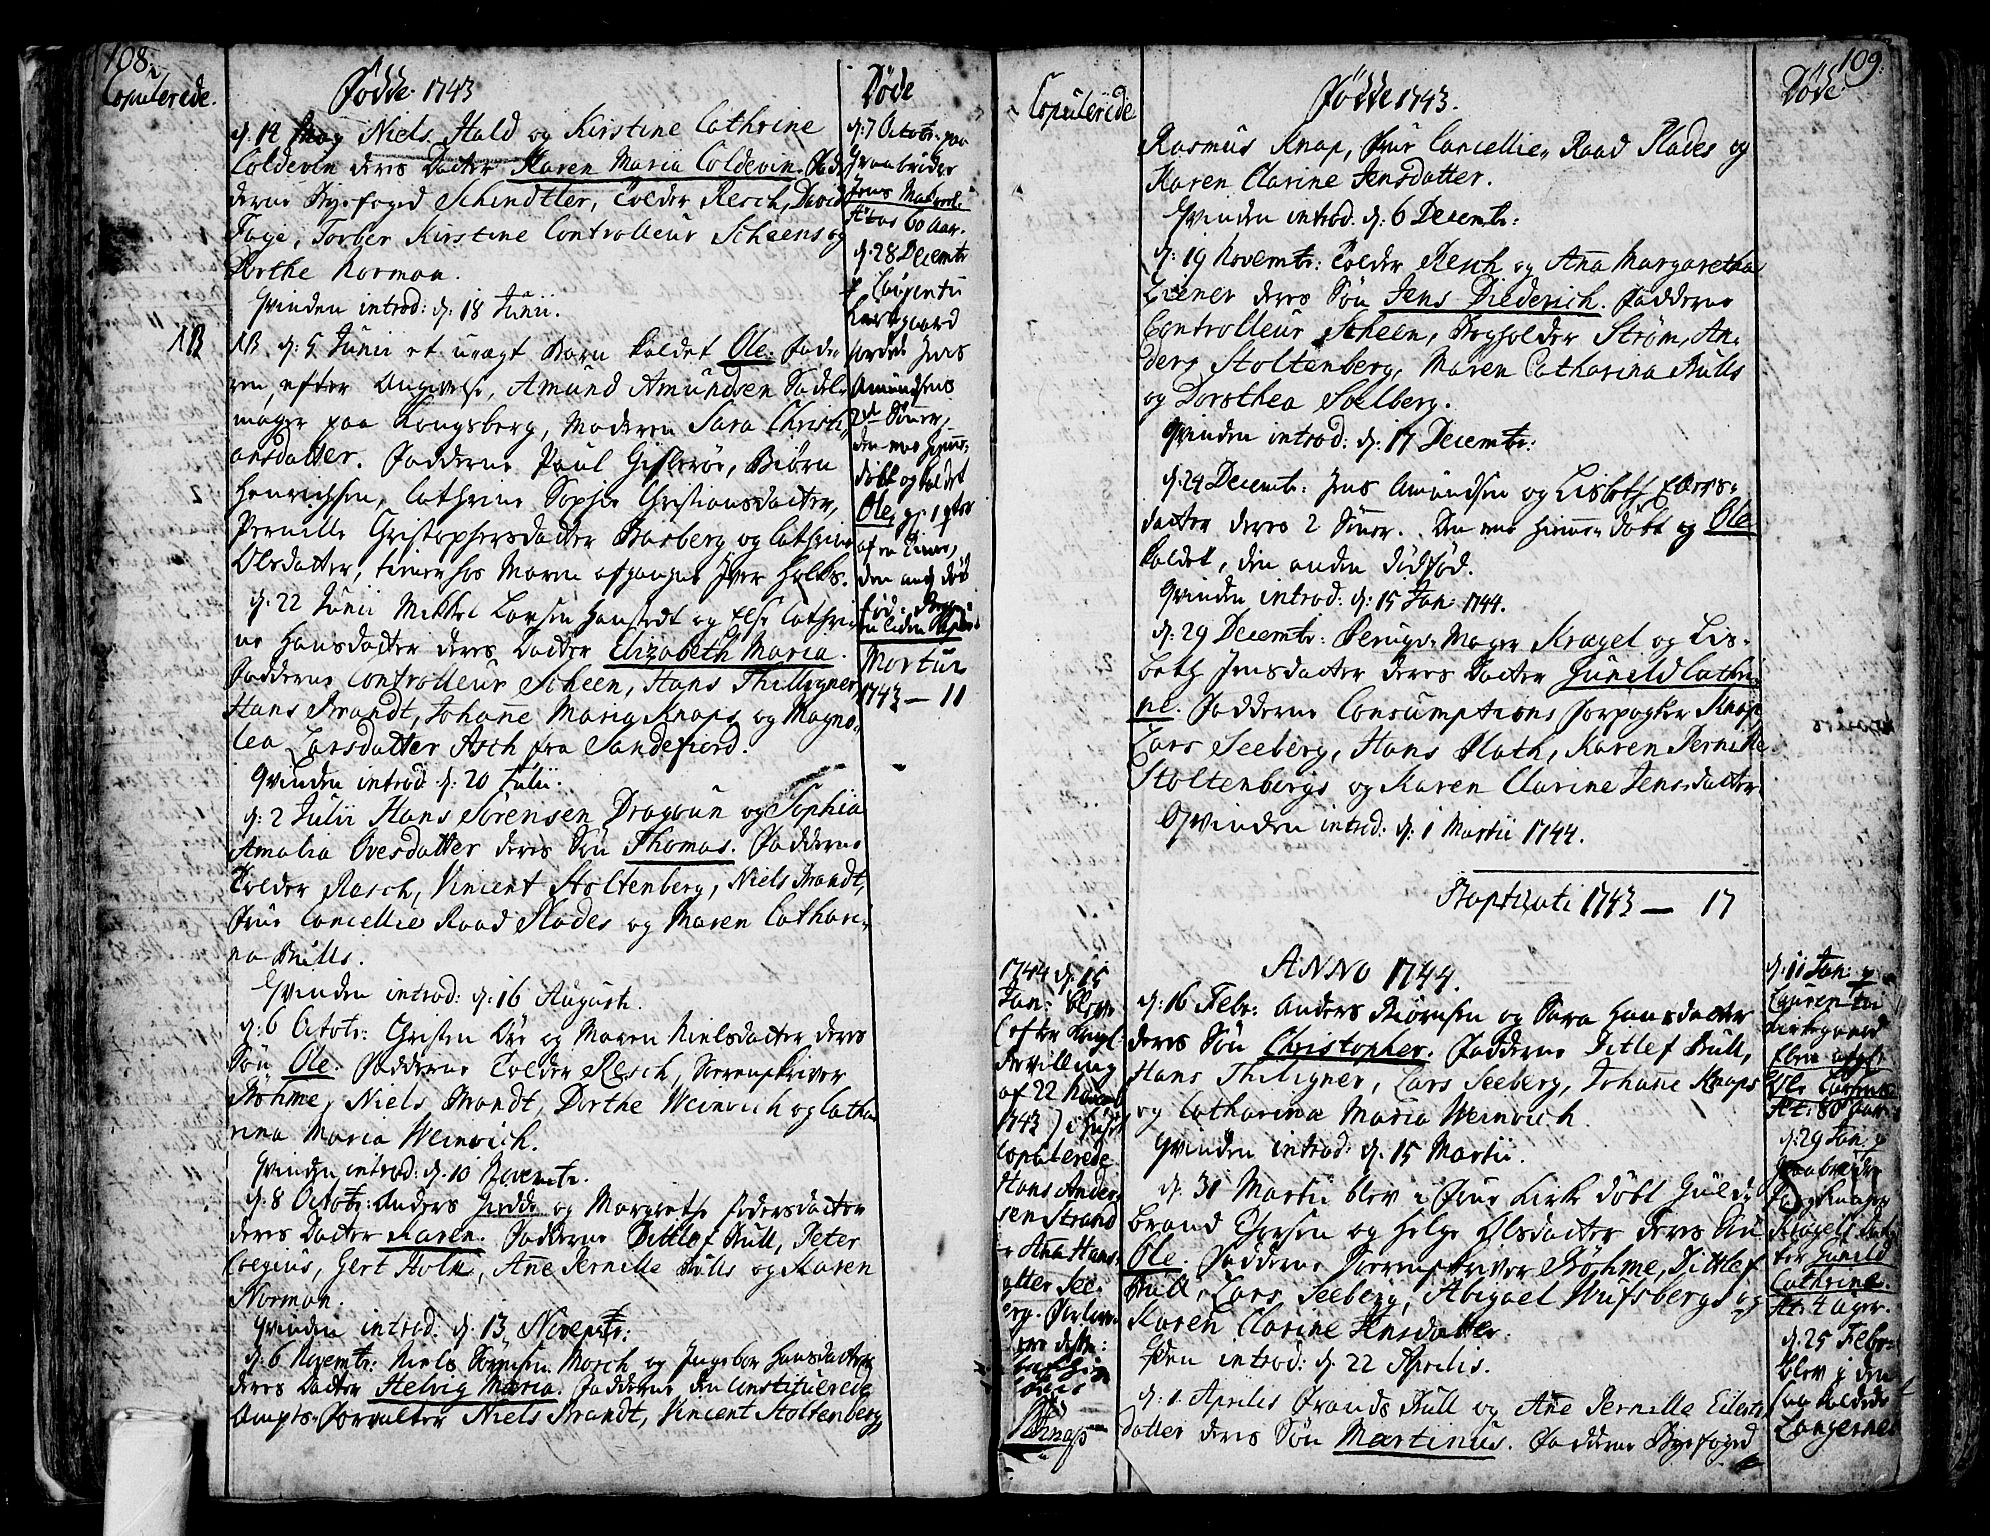 108.
Copulerede.
Fødde 1743
d: 14 May Niels Hald og Kirstine Cathrine
Coldevin deres Datter Karen Maria Coldevin. Fad
derne Byefoged Schindtler, Tolder Resch, David
Faye, Torber Kirstine Controlleur Scheens og
Dorthe Norman.
Qvinden introd: d: 18 Junii.
NB
NB d: 5 Junii et uægt Barn kaldet Ole. Fade
ren, efter Angivelse, Amund Amundsen Sadel
mager paa Kongsberg, Moderen Sara Christi
ansdatter. Fadderne Paul Gislerøe, Biørn
Henrichsen, Cathrine Sophie Christiansdatter,
Pernille Christophersdatter Basberg og Cathrine
Olsdatter, tiener hos Maren afgangne Iver Holks.
d: 22 Junii Mikkel Larsen Hanstedt og Else Cathri
ne Hansdatter deres Datter Elizabeth Maria.
Fadderne Controlleur Scheen, Hans Thilligner,
Hans Brandt, Johanne Maria Knaps og Magna
lea Larsdatter Asch fra Sandefiord.
Qvinden introd. d: 20 Julii.
d: 2 Julii Hans Sörensen Dragoun og Sophia
Amalia Ovesdatter deres Søn Thomas. Fadderne
Tolder Resch, Vincent Stoltenberg, Niels Brandt,
Frue Cancellie Raad Flades og Maren Cathari
na Bulls.
Qvinden introd: d: 16 August.
d: 6 Octobr: Christen Dye og Maren Nielsdatter deres
Søn Ole. Fadderne Tolder Resch, Sorenskriver
Böhme, Niels Brandt, Dorthe Weinrich og Catha
rina Maria Weinrich.
Qvinden introd: d: 10 Novembr.
d: 8 Octobr: Anders Giedde og Margrethe Pedersdatter
deres Datter Karen. Fadderne Ditlef Bull, Peter
Coegius, Gert Holn, Anne Pernille Bulls og Karen
Norman.
Qvinden introd. d: 13 Novembr:
d: 6 Novembr: Niels Sörensen Morch og Ingebor Hansdatter
deres Datter Helvig Maria. Fadderne den Constituerede
Ampts-Forvalter Niels Brandt, Vincent Stoltenberg
Døde
d: 7 Octobr: paa
Graabrødre
Jens
Ætas 60 Aar.
d: 28 Decembr
p: Laurentii
Kirkegaard
jordet Jens
Amundsens
2de Sønner,
den ene hiemme
døbt og kaldet
Ole, gl: 1 qter
af en Time,
den anden død
fød:
Mortui
1743 — 11
109.
Copulerede
Fødde 1743.
Døde
Rasmus Knap, Frue Cancellie Raad Flades og
Karen Clarine Jensdatter.
Qvinden introd. d: 6 Decembr:
d: 19 Novembr: Tolder Resch og Anna Margaretha
Ziener deres Søn Jens Diederich. Fadderne
Controlleur Scheen, Bogholder Strøm, An
ders Stoltenberg, Maren Catharina Bulls
og Dorothea Soelberg.
Qvinden introd: d: 17 Decembr:
d: 24 Decembr: Jens Amundsen og Lisbeth Lars
datter deres 2 Sønner. Den ene hiemme døbt og Ole
kaldet, den anden dødfød.
Qvinden introd: d: 15 Jan 1744.
d: 29 Decembr: Peruqve-Mager Kragel og Lis
beth Jensdatter deres Datter Gunild Cathri
ne. Fadderne Consumptions Forpagter Knap,
Lars Seeberg, Hans Plath, Karen Pernille
Stoltenbergs og Karen Clarine Jensdatter
Qvinden introd: d: 1 Martii 1744.
Baptizati 1743 — 17
ANNO 1744.
d: 16 Febr: Anders Biørnsen og Sara Hansdatter
deres Søn Christopher. Fadderne Ditlef Bull,
Hans Thiligner, Lars Seeberg, Johanne Knaps
og Catharina Maria Weinrich.
Qvinden introd: d: 15 Martii.
d: 31 Martii blev i Frue Kirke døbt Guld
brand Ifersen og Helge Olsdatter deres Søn
Ole. Fadderne Sorenskriver Böhme, Dittlef
Bull, Lars Seeberg, Abigael Wufsbergs og
Karen Clarine Jensdatter.
Qden introd: d: 22 Aprilis.
d: 1 Aprilis Frands Bull og Ane Pernille Eilerts
datter deres Søn Martinus. Fadderne Byefoged
1744 d: 15
Jan: bleve
(efter Kongl
Bevilling
af 22 Novemb
1743) i Huset
Copulerede
Hans Ander
sen Strand
og Anna Hans
datter See
berg. Forlover
Knap
d: 11 Jan: p
Laurentii
Kirkegaard
Ole
Æt: 80 Aar
d: 29 Jan: p
Graabrødre
Kragels Dat
ter Gunild
Cathrine.
Æt: 4 uger.
d: 25 Febr
blev i den
saa kaldede
Langernes